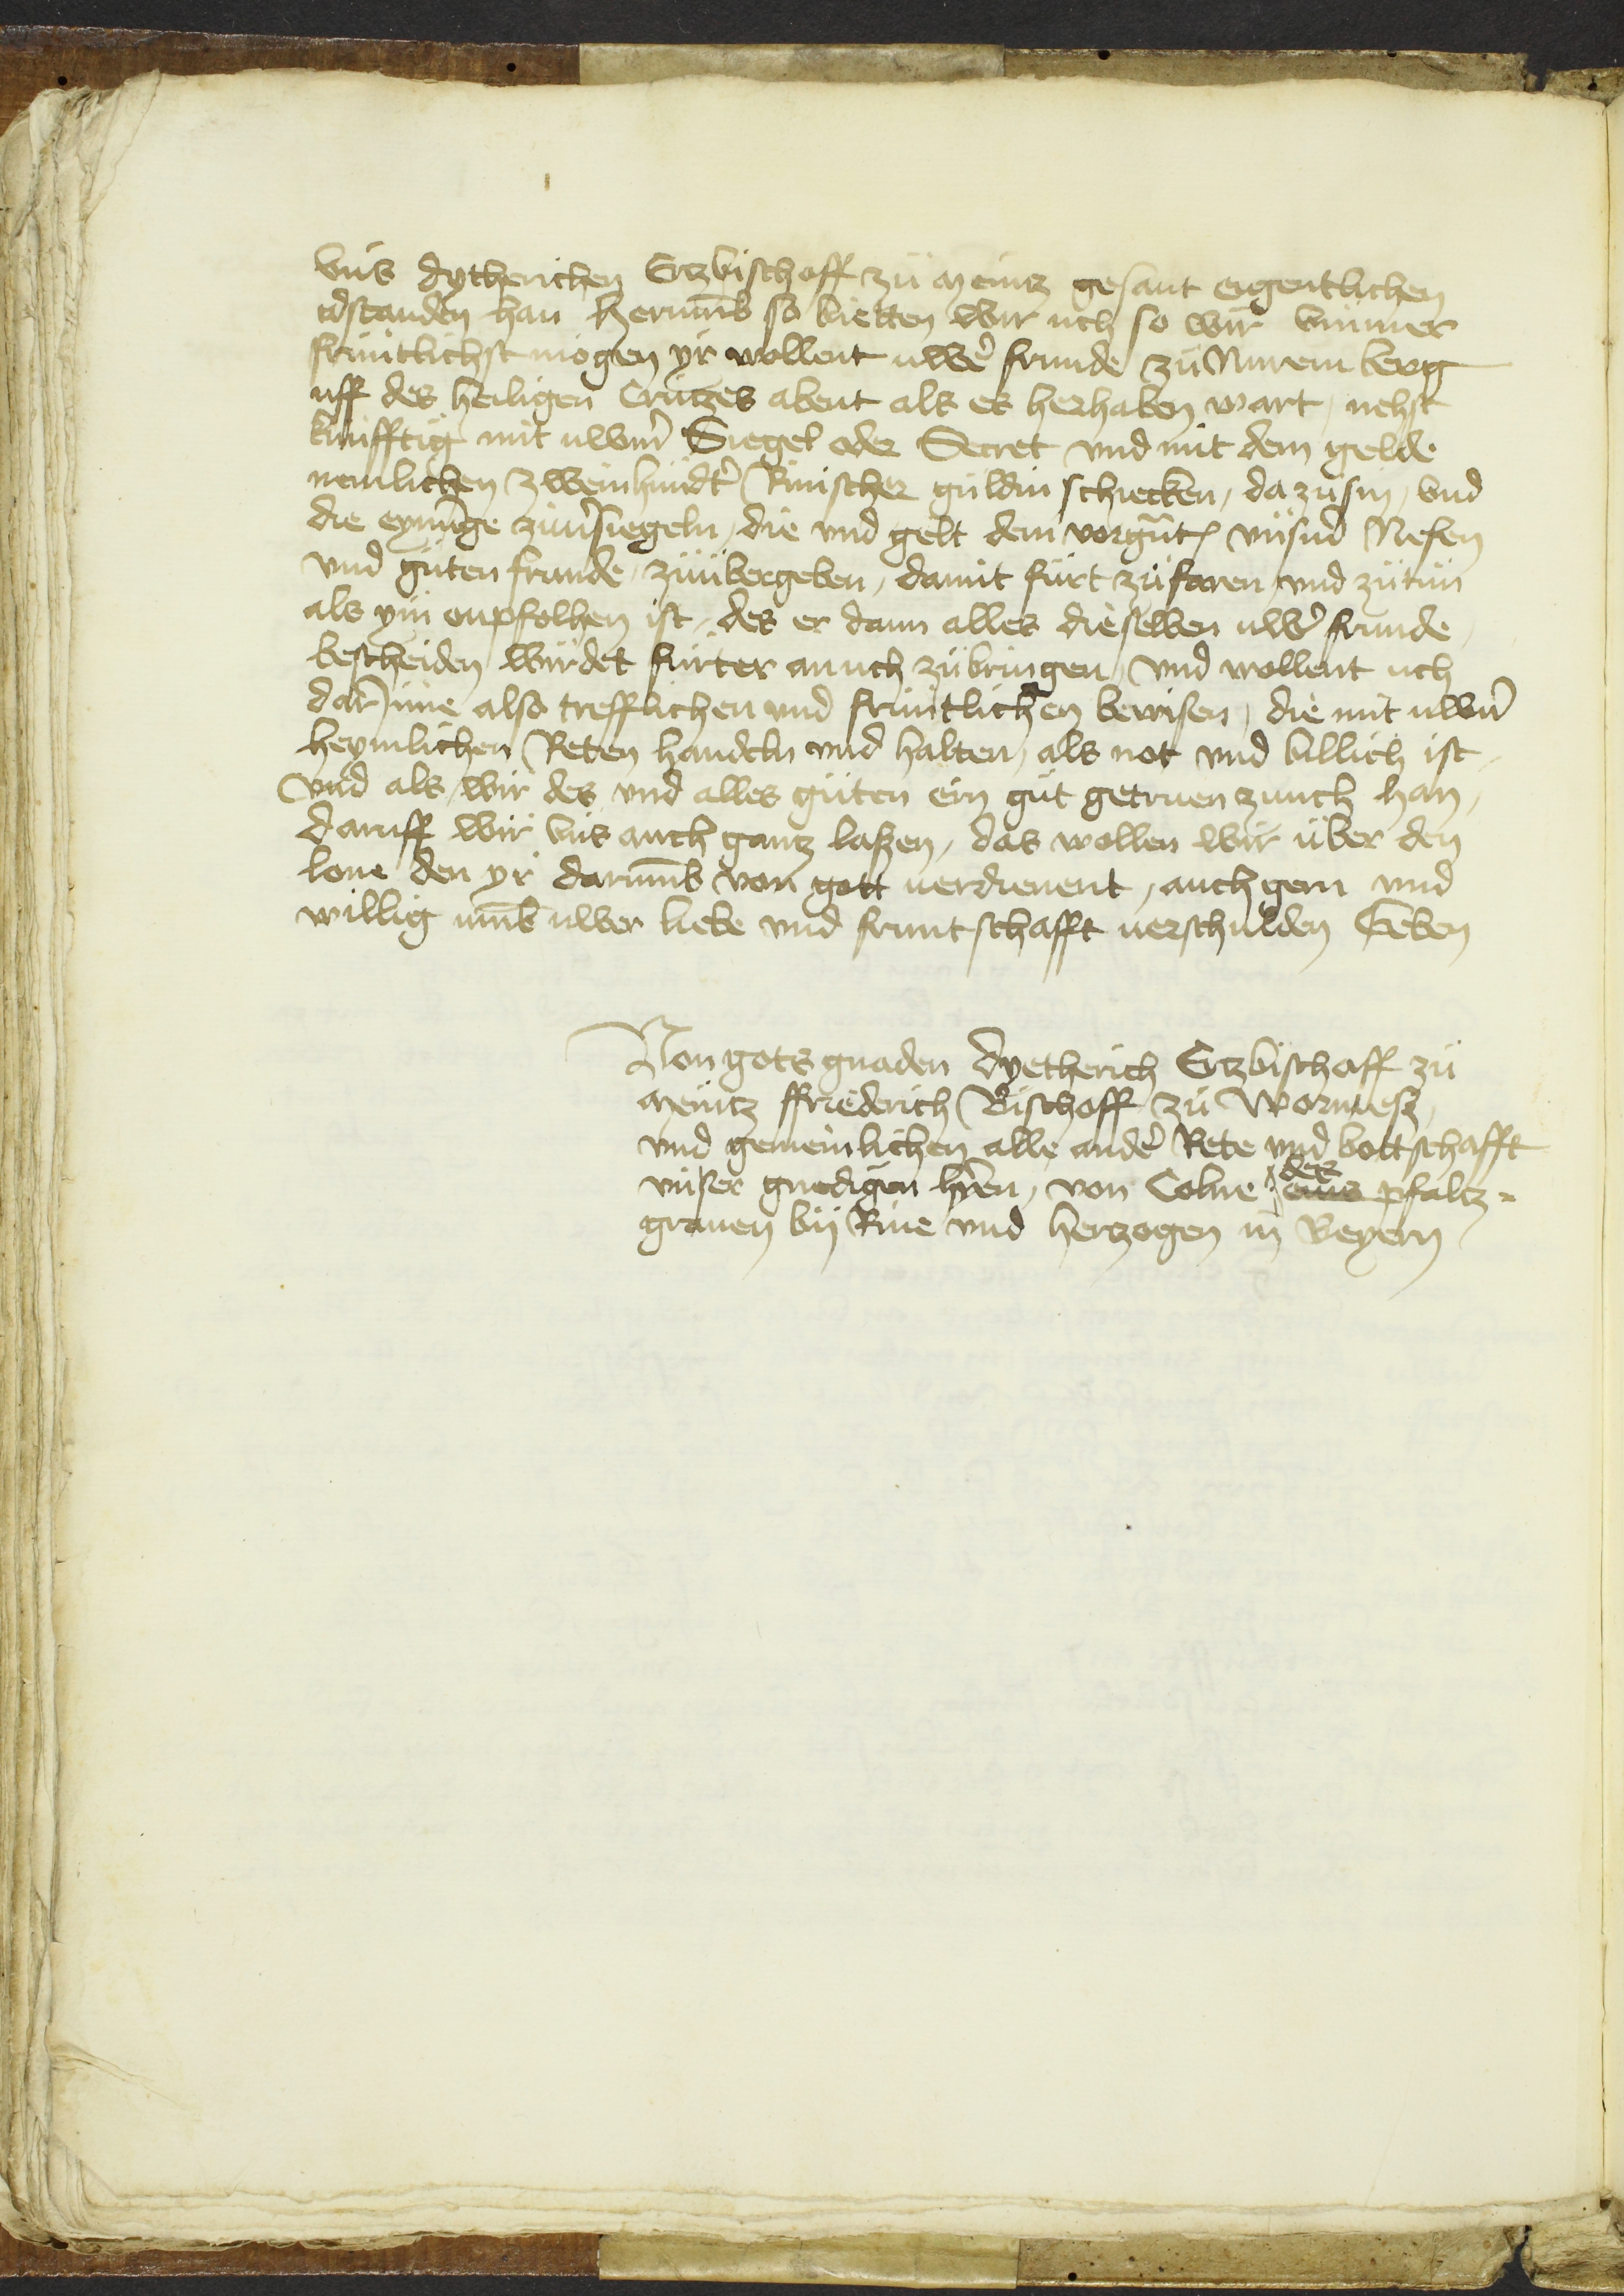 vns dytherichen Ertzbischoff zü Meintz gesant eygentlichen
v̓standen han herumb so bietten wir uch so wir vmmer
früntlichst mögen yr wollent uwer̉ frunde zü Nurem berg
uff des heiligen Crützes abent als es herhaben wart, nehst
künfftig mit uwerm Siegel oder Secret vnd mit dem gelde
nemlichen zweinhündt Rinischer güldin schiecken, da zü sin, vnd
die eynunge zünersiegeln, die vnd gelt dem vorgnt vnserm Nefen
vnd güten frunde, zuübergeben, damit fürt zü faren vnd zütün
als ym enpfolhen ist, des er dann alles dieselben uwer frunde,
bescheiden würdet fürter an uch zübringen, vnd wollent uch
dar Inne also trefflichen vnd früntlichen bewisen, die mit uwern
heymlichen Reten handeln vnd halten, als not vnd billich ist,
vnd als wir des vnd alles güten ein güt getruen zu uch han,
daruff wir vns auch gantz laßen, das wollen wir über den
lone den yr darumb von gott uerdienent, auch gern vnd
willig umb uwer liebe vnd fruntschafft uerschulden Geben
Von gots gnaden dyetherich Ertzbischaff zü
Meintz ffriederich Bischoff zü Wormesz,
vnd gemeinlichen alle ander̉ Rete vnd bottschafft
vnser gnedigen hren, von Colne des eins pfaltz-
grauen bij Rine vnd hertzogen in Beyern